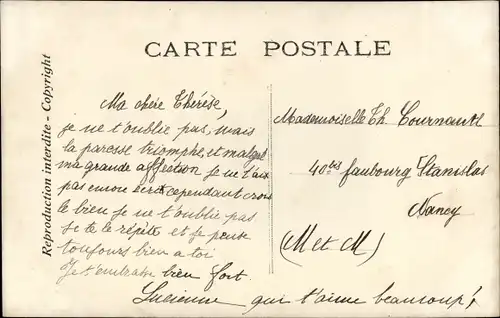 CARTE POSTALE
Reproduction interdite - Copyright
Ma chère Thérèse,
je ne t'oublie pas, mais
la paresse triomphe, et malgré
ma grande affection je ne t'ai
pas encore écrit cependant crois
le bien je ne t'oublie pas
je te le répète et je pense
toujours bien a toi
Je t'embrasse bien fort.
Lucienne qui t'aime beaucoup!
Mademoiselle Th.
40 bis faubourg Stanislas
Nancy
(M et M)